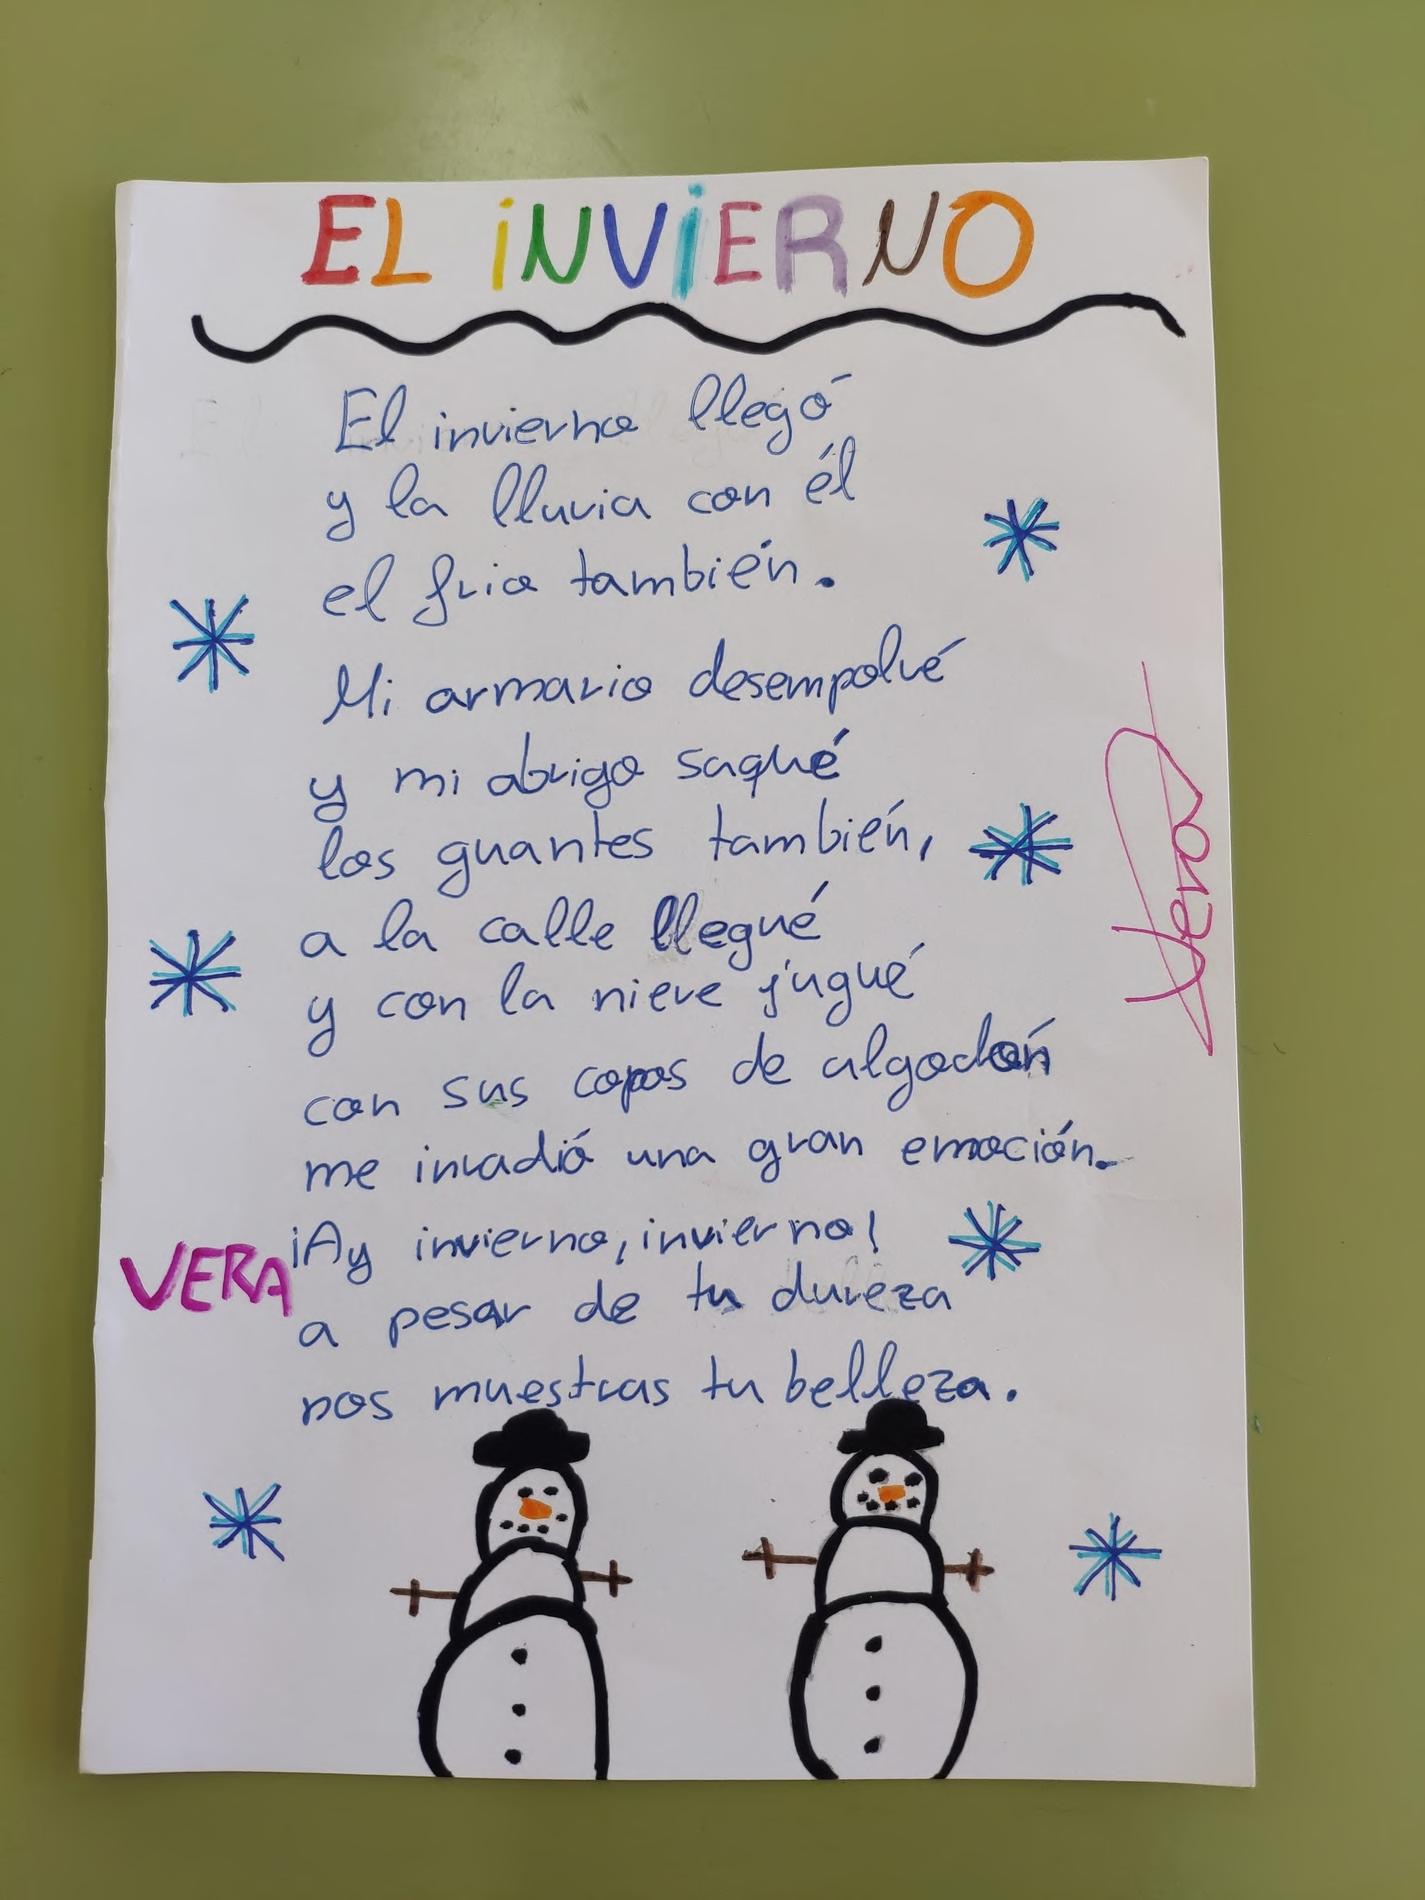 EL iNViERNO
El invierno llegó
y la lluvia con él
el frio también.
Mi armario desempolvé
y mi abrigo saqué
los guantes también,
a la calle llegué
y con la nieve jugué
con sus copos de algodón
me invadió una gran emoción.
¡Ay invierno, invierno!
a pesar de tu dureza
nos muestras tu belleza.
VERA
Vera